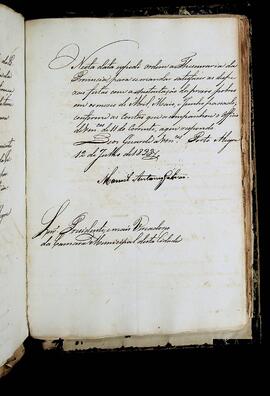 Nesta data expedi ordem a Thesouraria da
Provincia para mandar satisfazer as despe-
zas feitas com a sustentação de prezos pobres
em os mezes de Abril, Maio, e Junho passado,
conforme as contas que acompanharão o Officio
de Vm.ces de 11 do corrente, a que respondo
Deos Guarde a Vm.ces Porto Alegre
12 de Julho de
Manoel Antonio Galvão
Snr.s Presidente, e mais Vereadores
da Camara Municipal desta Cidade